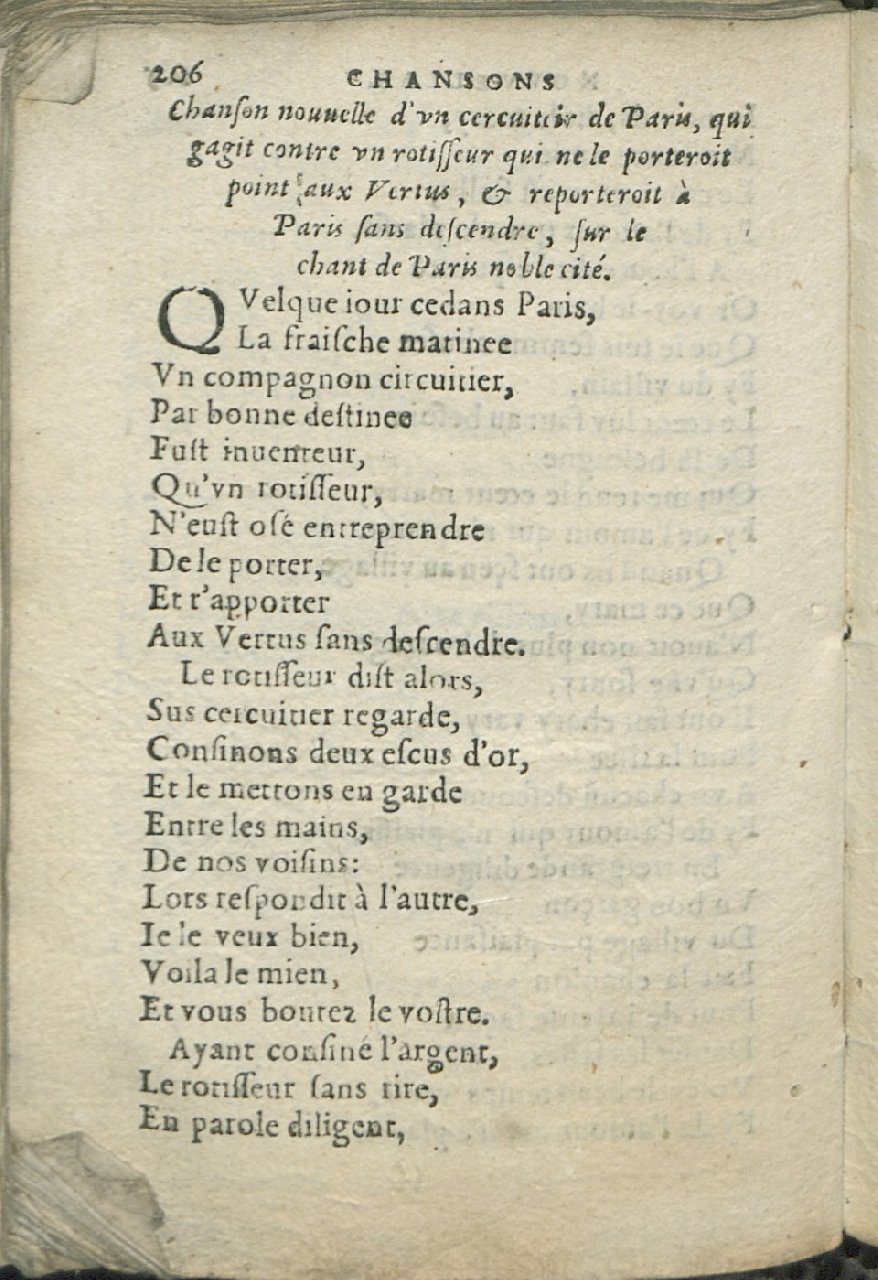 206 CHANSONS
Chanſon nouuelle d'vn cercuitier de Paris, qui
gagit contre vn rotiſſeur qui ne le porteroit
point aux Vertus, & reporteroit à
Paris ſans deſcendre, ſur le
chant de Paris noble cité.
QVelque iour cedans Paris,
La fraiſche matinee
Vn compagnon circuitier,
Par bonne deſtinee
Fuſt inuenteur,
Qu'vn rotiſſeur,
N'euſt oſé entreprendre
De le porter,
Et r'apporter
Aux Vertus ſans deſcendre.
Le rotiſſeur diſt alors,
Sus cercuitier regarde,
Conſinons deux eſcus d'or,
Et le mettons en garde
Entre les mains,
De nos voiſins:
Lors reſpondit à l'autre,
Ie le veux bien,
Voila le mien,
Et vous boutez le voſtre.
Ayant conſiné l'argent,
Le rotiſſeur ſans rire,
En parole diligent,